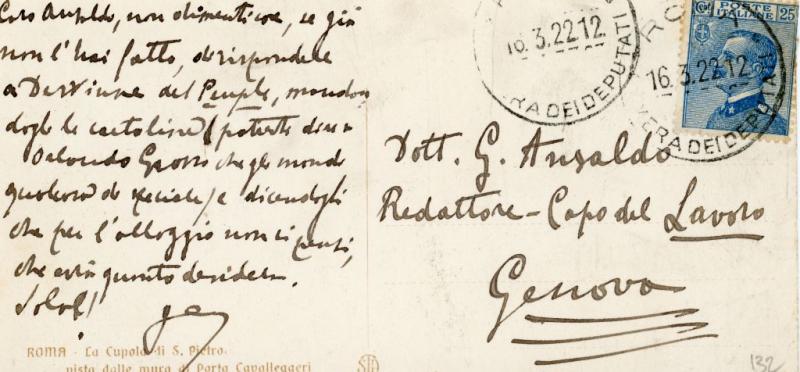 Caro Ansaldo, non dimenticare, se già
non l'hai fatto, di rispondere
a Destinne del Peuple, mandan
dogli le cartoline (potrete dire a
Orlando Grosso che gli mandi
qualcosa di speciale) e dicendogli
che per l'alloggio non ci pensi,
che avrà quanto desidera.
Saluti
ROMA - La Cupola di S. Pietro
vista dalle mura di Porta Cavalleggeri
16.3.22.12
RA DEI DEPUTATI
ROMA
16.3.22.12
MERA DEI DEPUTATI
POSTE ITALIANE
25
Dott. G. Ansaldo
Redattore-Capo del Lavoro
Genova
132